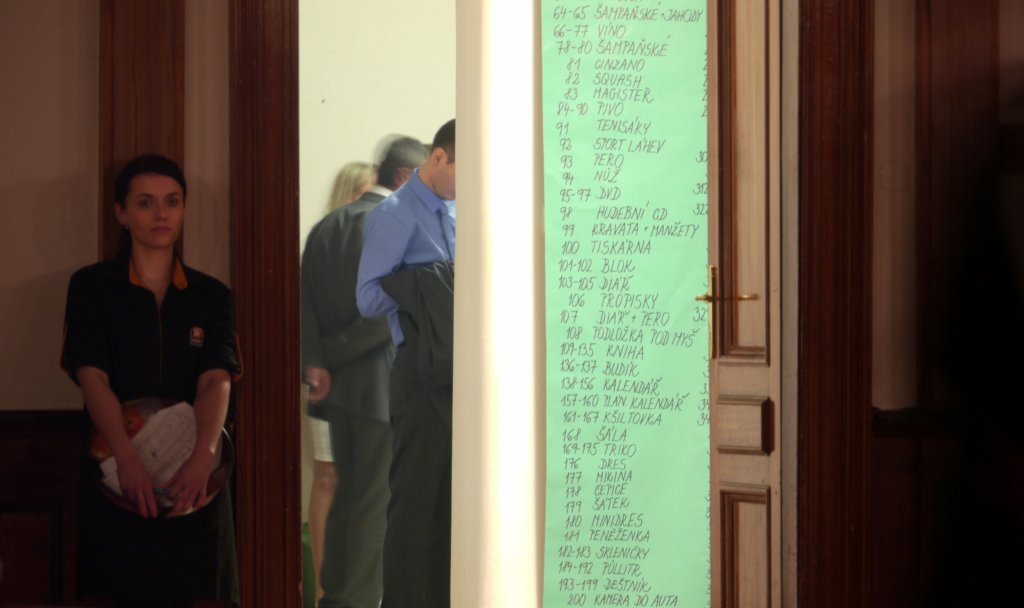 64-65 ŠAMPAŇSKÉ + JAHODY
66-77 VÍNO
78-80 ŠAMPAŇSKÉ
81 CINZANO
82 SQUASH
83 MAGISTER
84-90 PIVO
91 TENISÁKY
92 SPORT LÁHEV
93 PERO
94 NŮŽ
95-97 DVD
98 HUDEBNÍ CD
99 KRAVATA + MANŽETY
100 TISKÁRNA
101-102 BLOK
103-105 DIÁŘ
106 PROPISKY
107 DIÁŘ + PERO
108 PODLOŽKA POD MYŠ
109-135 KNIHA
136-137 BUDÍK
138-156 KALENDÁŘ
157-160 PLAN. KALENDÁŘ
161-167 KŠILTOVKA
168 ŠÁLA
169-175 TRIKO
176 DRES
177 MIKINA
178 ČEPICE
179 ŠÁTEK
180 MINIDRES
181 PENĚŽENKA
182-183 SKLENIČKY
184-192 PŮLLITR
193-199 DEŠTNÍK
200 KAMERA DO AUTA